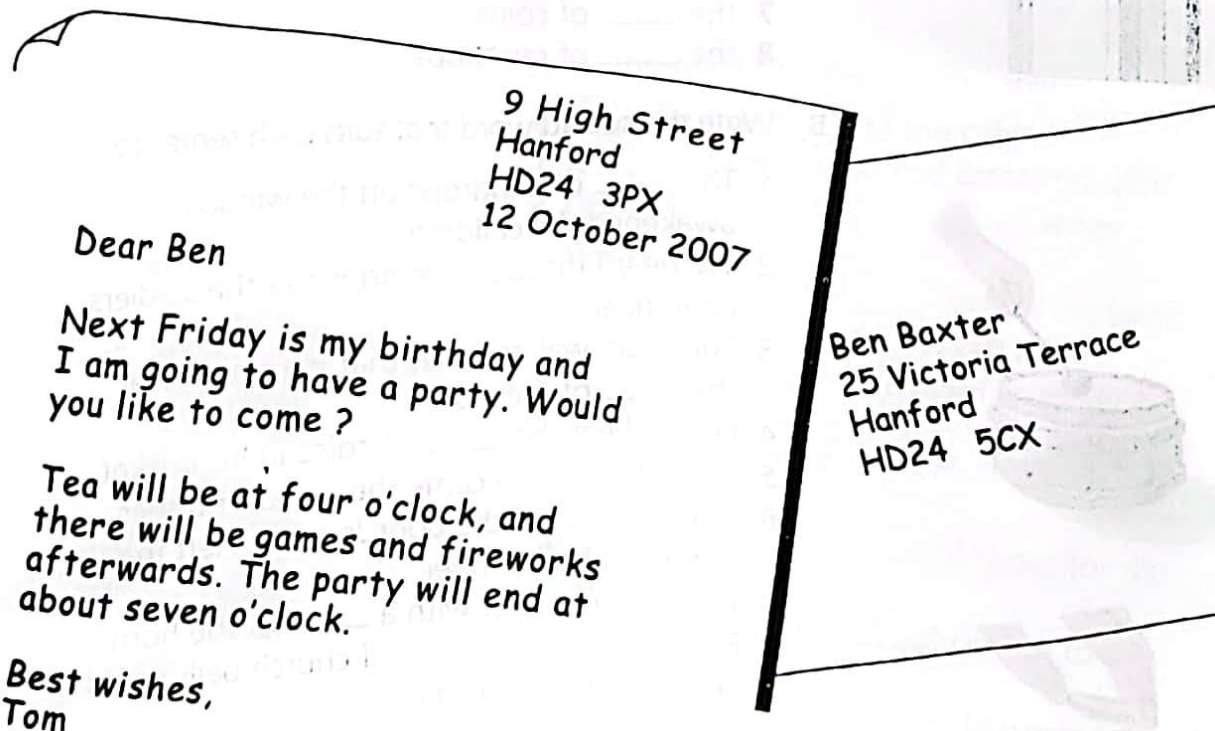 9 High Street
Hanford
HD24 3PX
12 October 2007
Dear Ben
Next Friday is my birthday and
I am going to have a party. Would
you like to come ?
Tea will be at four o'clock, and
there will be games and fireworks
afterwards. The party will end at
about seven o'clock.
Best wishes,
Tom
Ben Baxter
25 Victoria Terrace
Hanford
HD24 5CX